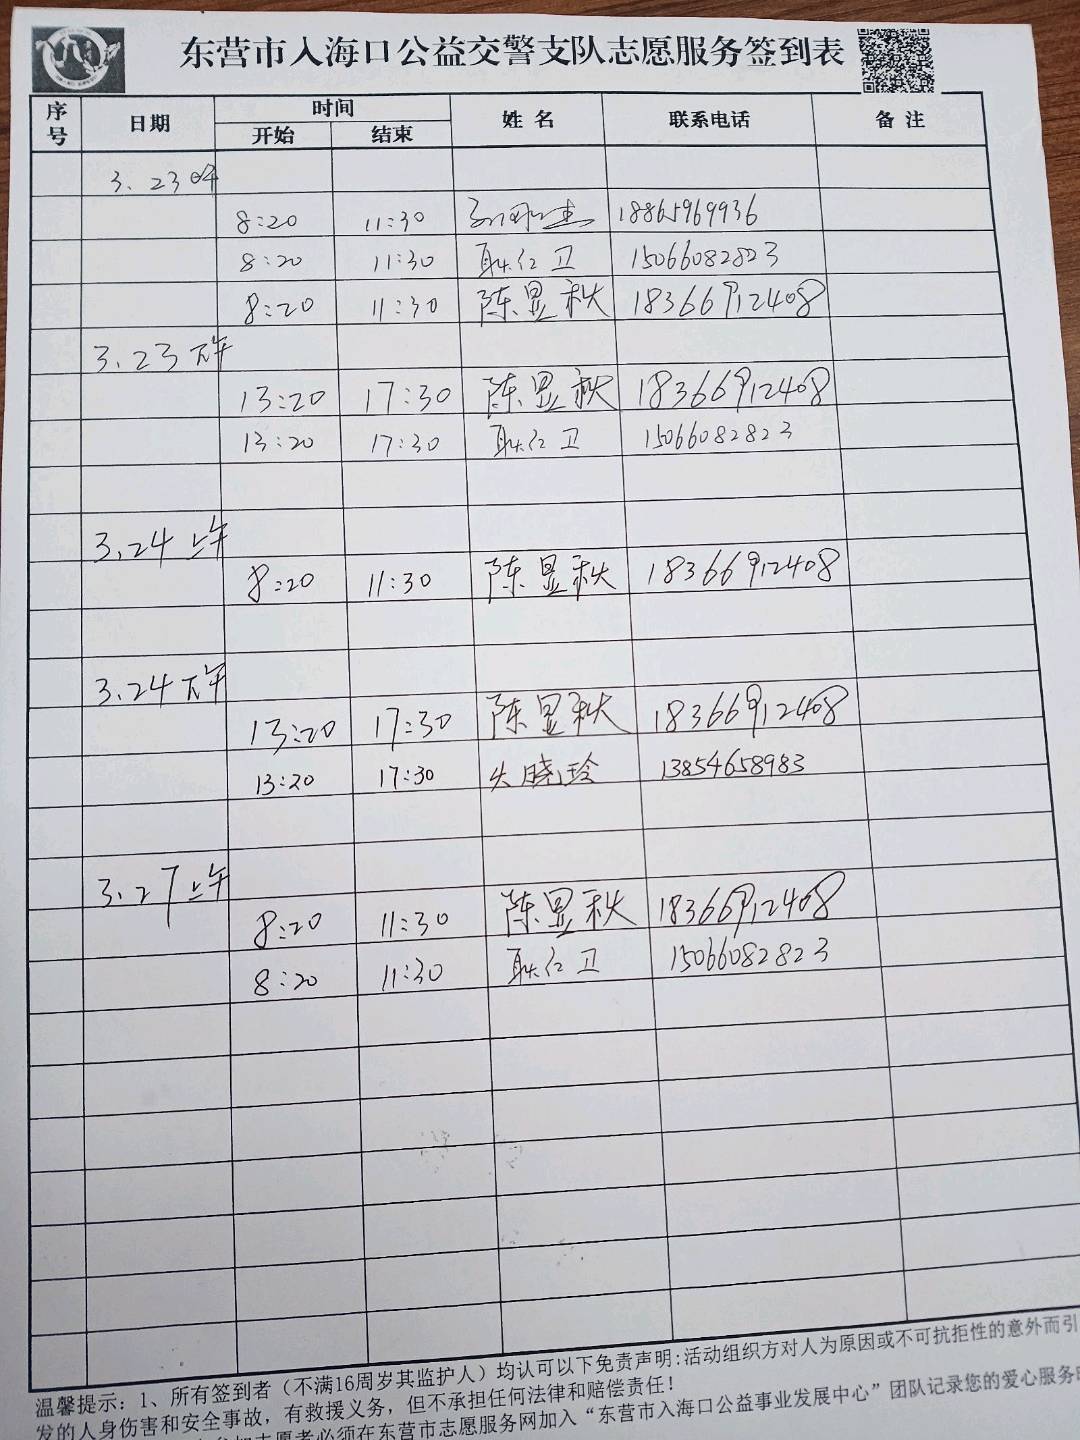 东营市入海口公益交警支队志愿服务签到表
序号 日期 时间 姓 名 联系电话 备 注
开始 结束
3.23
8:20 11:30 18865969936
8:20 11:30 耿仁卫 15066082823
8:20 11:30 陈显秋 18366912408
3.23下午
13:20 17:30 陈显秋 18366912408
13:20 17:30 耿仁卫 15066082823
3.24上午
8:20 11:30 陈显秋 18366912408
3.24下午
13:20 17:30 陈显秋 18366912408
13:20 17:30 晓玲 13854658983
3.27上午
8:20 11:30 陈显秋 18366912408
8:20 11:30 耿仁卫 15066082823
温馨提示：1、所有签到者（不满16周岁其监护人）均认可以下免责声明:活动组织方对人为原因或不可抗拒性的意外而引
发的人身伤害和安全事故，有救援义务，但不承担任何法律和赔偿责任！
志愿者必须在东营市志愿服务网加入“东营市入海口公益事业发展中心”团队记录您的爱心服务